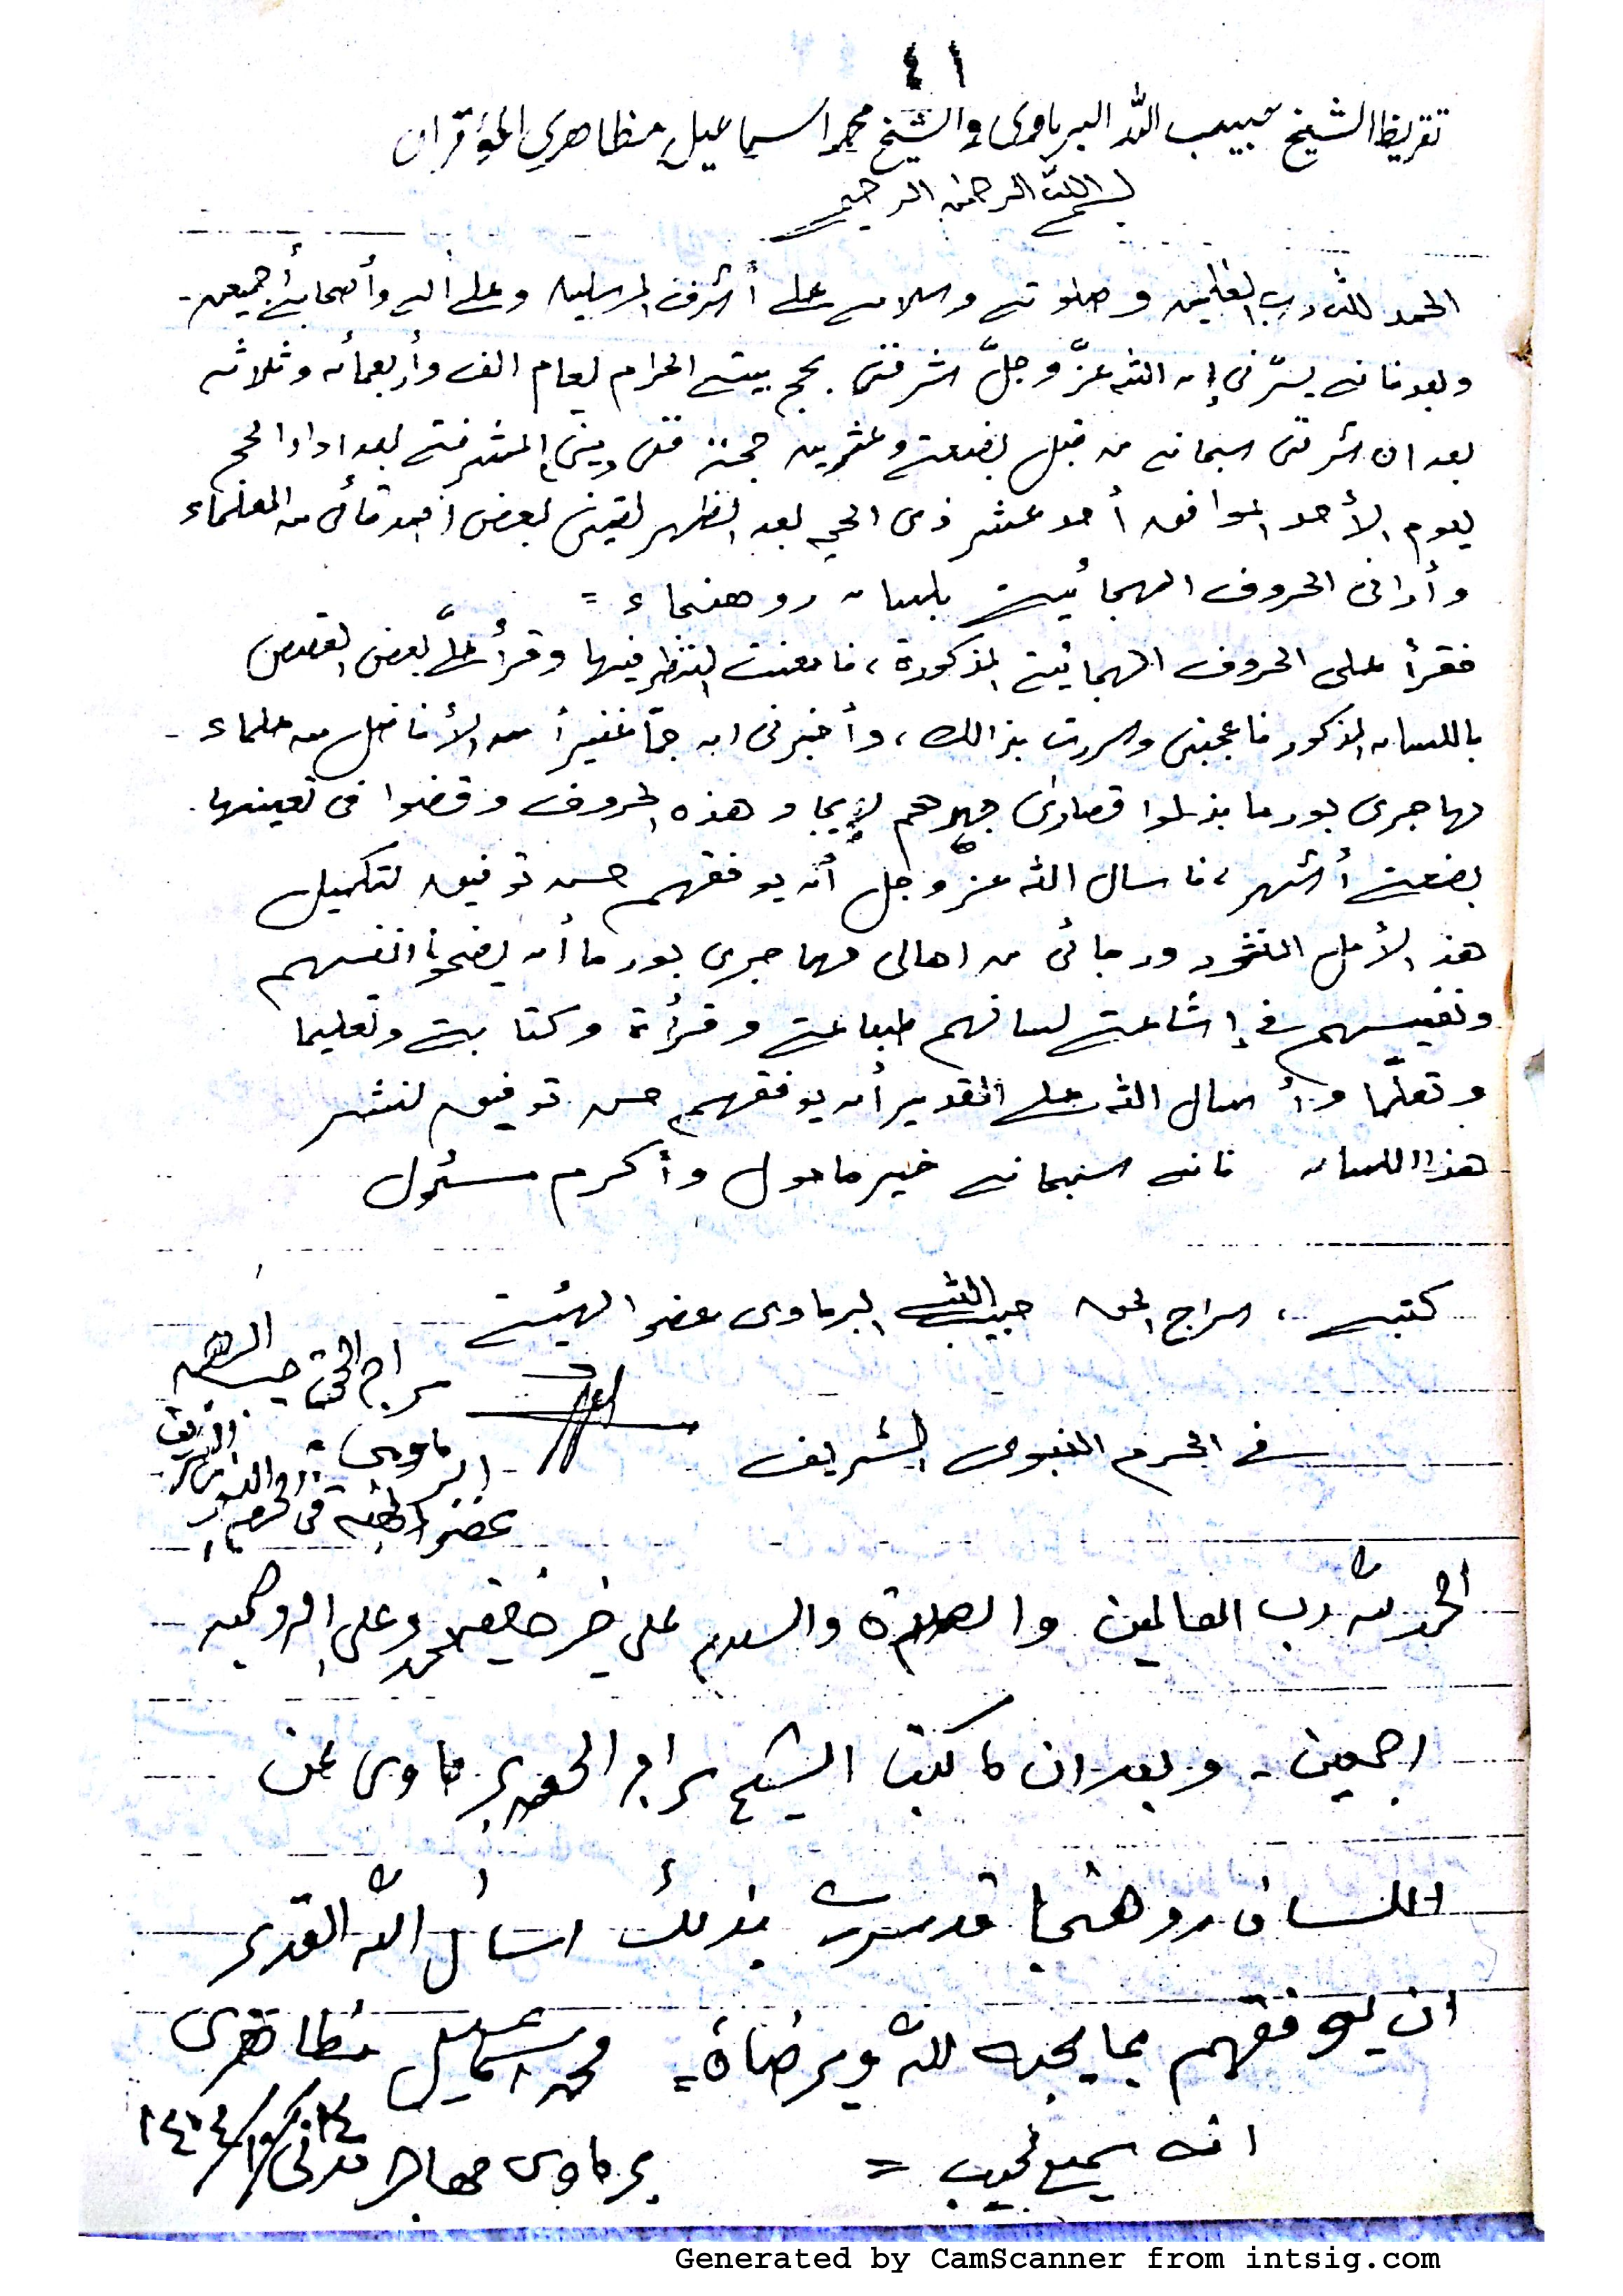 ٤١
تقريظ الشيخ حبيب الله البرماوى والشيخ محمد اسماعيل مظاهري المؤقران
بسم الله الرحمن الرحيم
الحمد لله رب العلمين وصلوته وسلامه على أشرف المرسلين وعلى اله وأصحابه أجمعين -
وبعد فانه يسرّنى إن الله عزّ وجلّ شرفنى بحج بيته الحرام لعام الف وأربعمأه وثلاثه
بعد ان شرفنى سبحانه من قبل بضعة وعشرين حجة ففى المشرفة بعد اداء الحج
يوم الأحد الموافق أحد عشر ذى الحجه بعد الظهر لقينى بعض اصدقائى من العلماء
وأرانى الحروف الهجائية بلسان روهنجاء =
فقرأ على الحروف الهجائية المذكورة، فامعنت النظر فيها وقرأ علىّ بعض القصص
باللسان المذكور فاعجبنى وسررت بذالك، وأخبرنى ان جمّا غفيرأ من الأفاضل من علماء -
مهاجرى بورما بذلوا قصارى جهدهم لإيجاد هذه الحروف وقضوا فى تعينها
بضعة أشهر، فاسال الله عزّ وجل أن يوفقهم حسن توفيق لتكميل
هذ الأمل المنشود ورجائى من اهالى مهاجرى بورما أن يضحوا انفسهم
ونفيسهم فى إشاعة لسانهم طباعة وقرأة وكتابة وتعليما
وتعلّما وأسال الله على القدير أن يوفقهم حسن توفيق لنشر
هذا اللسان فانه سبحانه خير مامول وأكرم مسئول
كتبه ، سراج الحق حبيب الله البرماوى عضو الهيئة
سراج الحق حبيب الله
فى الحرم النبوى الشريف
البرماوى
عضو الهيئة فى الحرم النبوى الشريف
الحمد لله رب العالمين والصلاة والسلام على خير خلقه محمد وعلى اله وصحبه
اجمعين - وبعد ان ما كتب الشيخ سراج الحق برماوى عن
اللسان روهنجا قد سررت بذلك اسأل الله القدير
ان يوفقهم بما يحبه لله ويرضاه = محمد اسماعيل مظاهرى
انه سميع مجيب = برماوى مهاجر مدنى